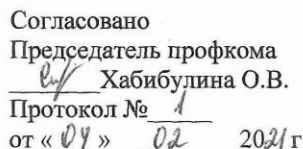 Согласовано
Председатель профкома
Хабибулина О.В.
Протокол № 1
от « 04 » 02 2021 г